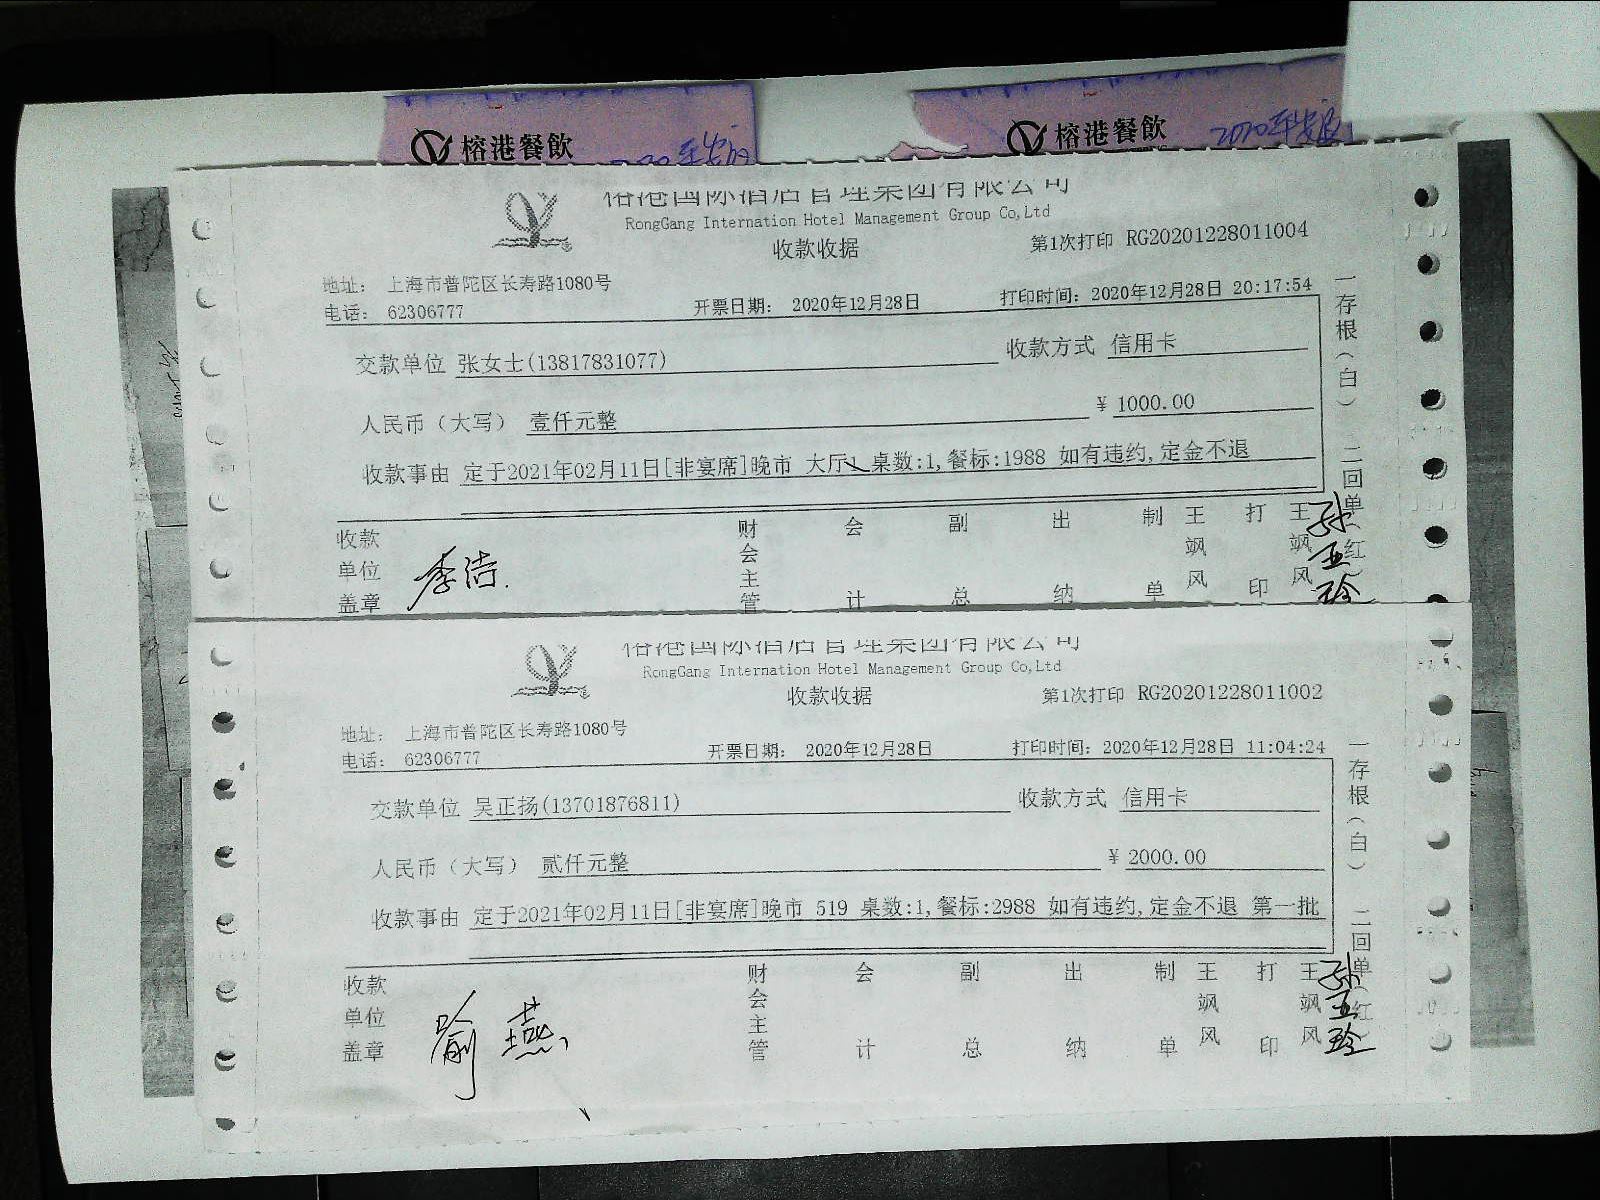 榕港餐飲
榕港餐飲
2020年
榕港国际酒店管理集团有限公司
RongGang Internation Hotel Management Group Co,Ltd
收款收据
第1次打印 RG20201228011004
地址： 上海市普陀区长寿路1080号
电话： 62306777
开票日期： 2020年12月28日
打印时间：2020年12月28日 20:17:54
交款单位 张女士(13817831077)
收款方式 信用卡
人民币（大写） 壹仟元整
¥ 1000.00
收款事由 定于2021年02月11日[非宴席]晚市 大厅1 桌数:1,餐标:1988 如有违约,定金不退
一存根（白） 二回单（红）
收款单位盖章
李洁
财会主管
会计
副总
出纳
制单
王飒风
打印
王飒风
孙亚玲
榕港国际酒店管理集团有限公司
RongGang Internation Hotel Management Group Co,Ltd
收款收据
第1次打印 RG20201228011002
地址： 上海市普陀区长寿路1080号
电话： 62306777
开票日期： 2020年12月28日
打印时间：2020年12月28日 11:04:24
交款单位 吴正扬(13701876811)
收款方式 信用卡
人民币（大写） 贰仟元整
¥ 2000.00
收款事由 定于2021年02月11日[非宴席]晚市 519 桌数:1,餐标:2988 如有违约,定金不退 第一批
一存根（白） 二回单（红）
收款单位盖章
喻燕
财会主管
会计
副总
出纳
制单
王飒风
打印
王飒风
孙亚玲